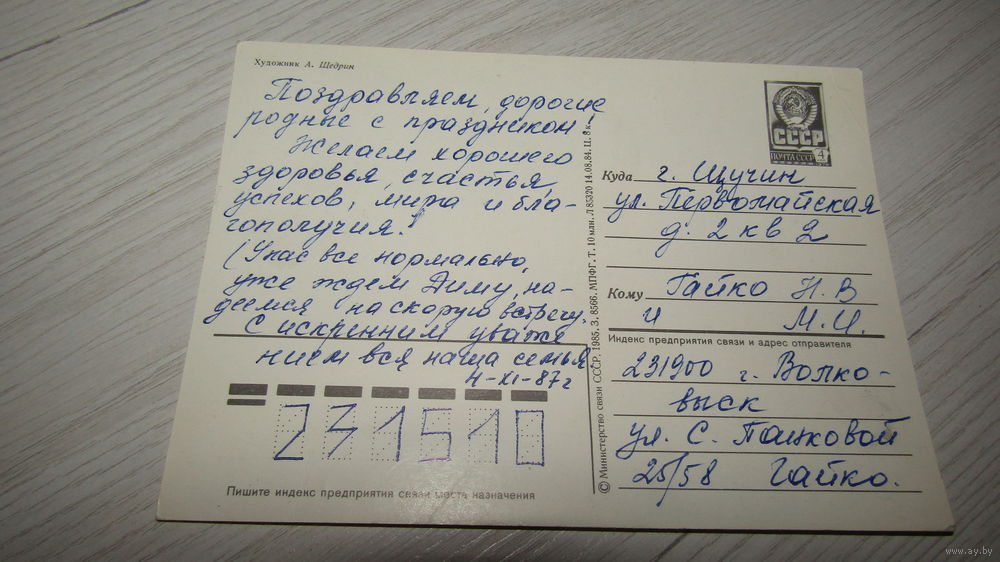 Художник А. Щедрин
Поздравляем, дорогие
родные с праздником!
Желаем хорошего
здоровья, счастья,
успехов, мира и бла-
гополучия.
(У нас все нормально,
уже ждем Диму, на-
деемся на скорую встречу.
С искренним уваже
нием вся наша семья.
4-XI-87 г
231510
Пишите индекс предприятия связи места назначения
© Министерство связи СССР, 1985. З. 8566. МПФГ. Т. 10 млн. Л 85320 14.08.84. Ц. 8 к.
СССР
ПОЧТА СССР 4
Куда г. Щучин
ул. Первомайская
д. 2 кв 2
Кому Гайко Н. В
и М. И.
Индекс предприятия связи и адрес отправителя
231900 г. Волко-
выск
ул. С. Панковой
25/58 Гайко.
www.ay.by